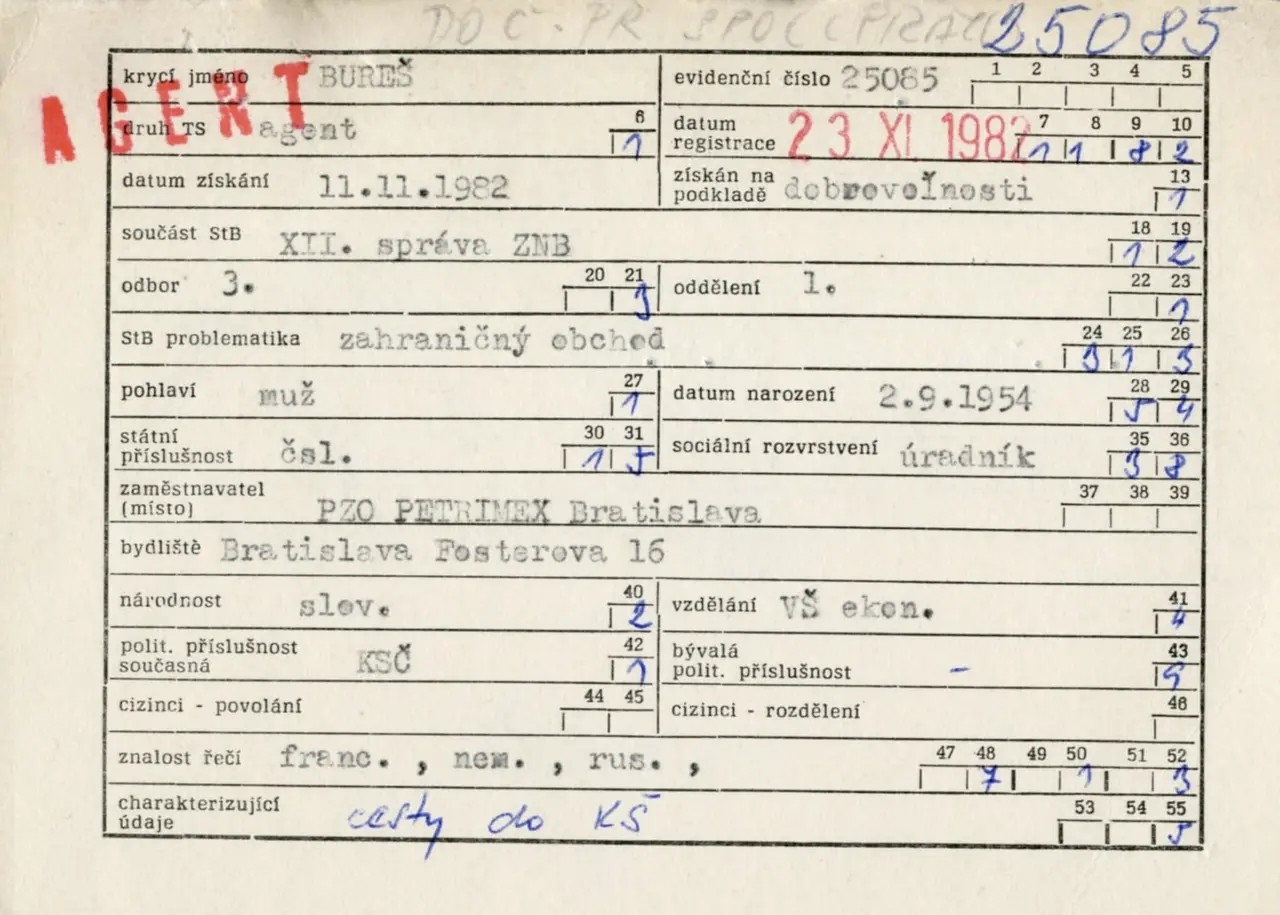 DOČ. PŘ SPOLUPRÁCI 25085
AGENT
krycí jméno BUREŠ
evidenční číslo 25085 1 2 3 4 5
druh TS agent 6 1
datum registrace 23 XI 1982 7 8 9 10 1 1 8 2
datum získání 11.11.1982
získán na podkladě dobrovoľnosti 13 1
součást StB XII. správa ZNB 18 19 1 2
odbor 3. 20 21 3
oddělení 1. 22 23 1
StB problematika zahraničný obchod 24 25 26 3 1 3
pohlaví muž 27 1
datum narození 2.9.1954 28 29 5 4
státní příslušnost čsl. 30 31 1 5
sociální rozvrstvení úradník 35 36 3 8
zaměstnavatel (místo) PZO PETRIMEX Bratislava 37 38 39
bydliště Bratislava Fosterova 16
národnost slov. 40 2
vzdělání VŠ ekon. 41 4
polit. příslušnost současná KSČ 42 1
bývalá polit. příslušnost - 43 9
cizinci - povolání 44 45
cizinci - rozdělení 46
znalost řečí franc. , nem. , rus. , 47 48 49 50 51 52 7 1 3
charakterizující údaje cesty do KŠ 53 54 55 5